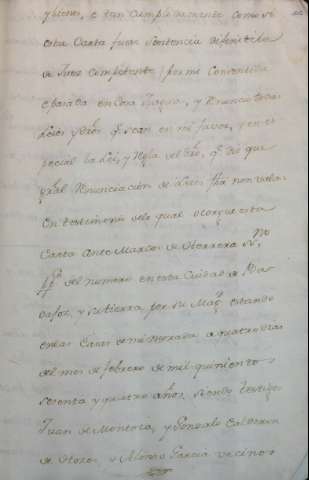 y bienes, e tan cumplidamente como si
esta Carta fuese Sentencia difinitiba
de Juez Competente por mi Consentida
e pasada en Cosa Juzgada, y renuncio todas
Leies y dros q̃ sean en mi favor, y en es-
pecial la Lei, y regla del dro, q̃ diz que
gral renunciación de Leies fha non vala.
En testimonio delo qual otorgue esta
Carta Ante Marcos de Herrera Sno
pp.co del numero en esta Ciudad de Ba-
dafoz, y su tierra por su Mag. estando
en las Casas de mi morada a quatro dias
del mes de febrero de mil quinientos
setenta y quatro años, siendo testigos
Juan de Montoia, y Gonzalo Calderon
de Hozes, y Alonso Garcia vecinos